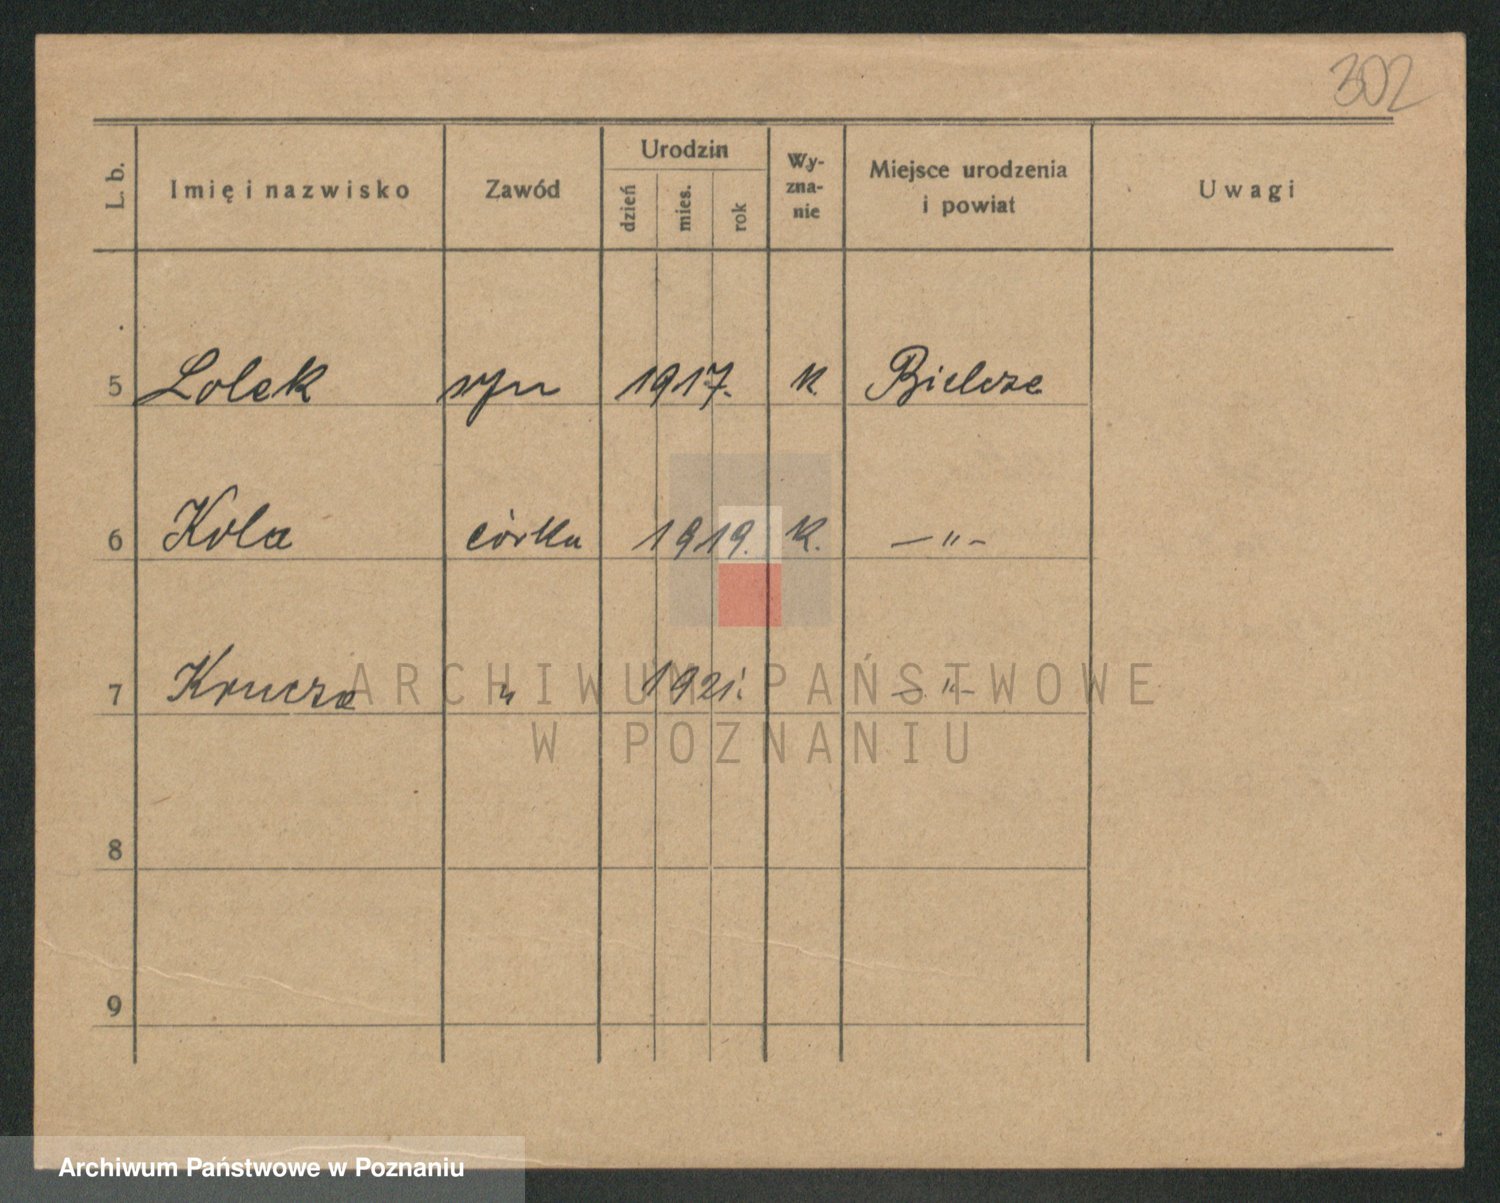 302
L. b. Imię i nazwisko Zawód Urodzin dzień mies. rok Wy-zna-nie Miejsce urodzenia i powiat Uwagi
5 Lolek syn 1917. k Bielcze
6 Kola córka 1919. k. — " -
7 Krucza " 1921. — " -
8
9
ARCHIWUM PAŃSTWOWE
W POZNANIU
Archiwum Państwowe w Poznaniu